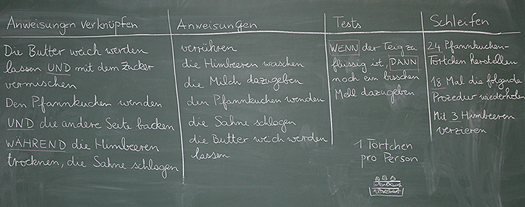 Anweisungen verknüpfen
Die Butter weich werden
lassen UND mit dem Zucker
vermischen
Den Pfannkuchen wenden
UND die andere Seite backen
WÄHREND die Himbeeren
trocknen, die Sahne schlagen
Anweisungen
verrühren
die Himbeeren waschen
die Milch dazugeben
den Pfannkuchen wenden
die Sahne schlagen
die Butter weich werden
lassen
Tests
WENN der Teig zu
flüssig ist, DANN
noch ein bisschen
Mehl dazugeben
1 Törtchen
pro Person
Schleifen
24 Pfannkuchen-
Törtchen herstellen
18 Mal die folgende
Prozedur wiederholen
Mit 3 Himbeeren
verzieren